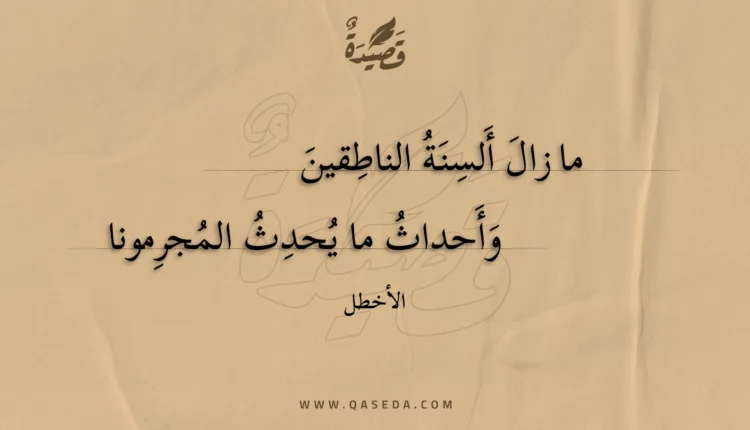 قَصِيْدَةٌ
ما زالَ أَلسِنَةُ الناطِقينَ
وَأَحداثُ ما يُحدِثُ المُجرِمونا
الأخطل
WWW.QASEDA.COM